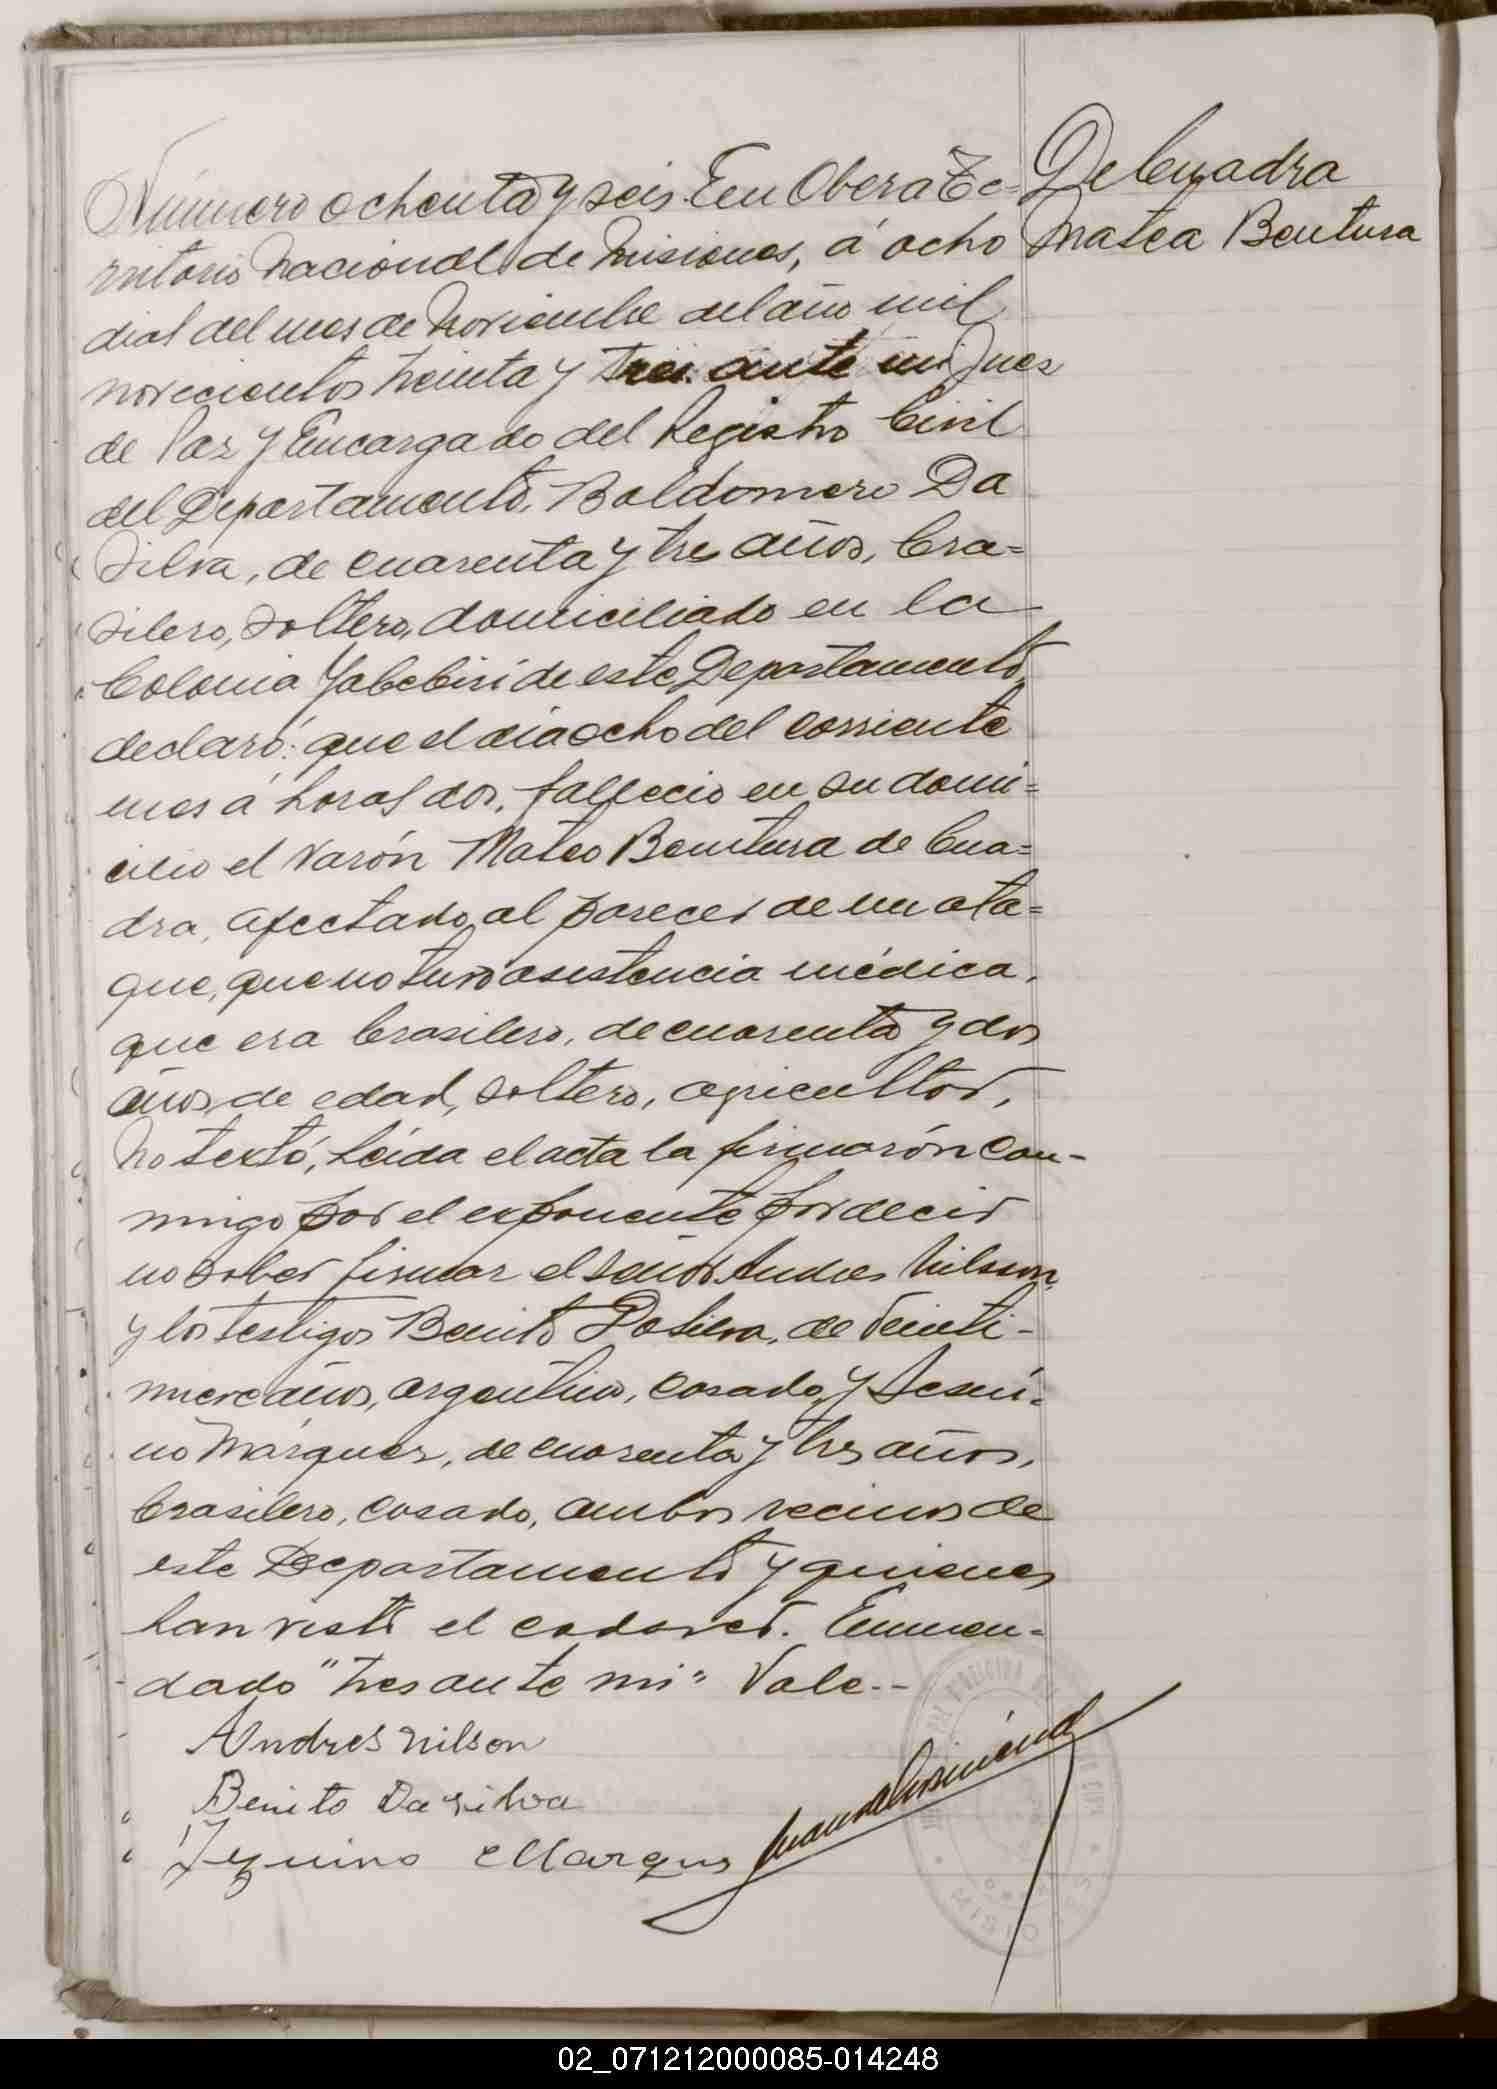 Número ochenta y seis. En Oberá Te=
rritorio Nacional de Misiones, á ocho
dias del mes de Noviembre del año mil
novecientos treinta y tres ante mi Juez
de Paz y Encargado del Registro Civil
del Departamento, Baldomero Da
Silva, de cuarenta y tres años, bra=
silero, soltero, domiciliado en la
Colonia Yabebirí de este Departamento,
declaró: que el día ocho del corriente
mes á horas dos, fallecio en su domi=
cilio el varón Mateo Bentura de Cua=
dra, afectado al parecer de un ata=
que, que no tuvo asistencia médica,
que era brasilero, de cuarenta y dos
años de edad, soltero, agricultor,
No testó, Leida el acta la firmarón con-
migo por el exponente por decir
no saber firmar el señor Andres Nilsson,
y los testigos Benito Da Silva, de veinti-
nueve años, argentino, casado, y
no Márquez, de cuarenta y tres años,
brasilero, casado, ambos vecinos de
este Departamento y quienes
han visto el cadaver. Enmen=
dado "tres ante mi" Vale.-
Andres Nilson
Benito Da silva
Marques
De Cuadra
Matea Bentura
MISIONES
02_071212000085-014248